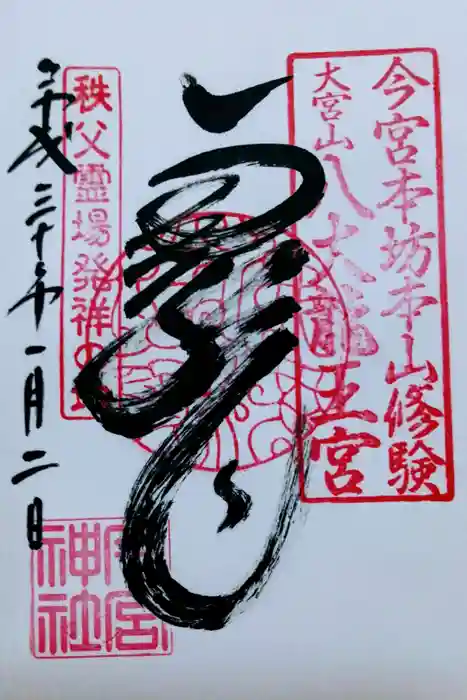 今宮本坊本山修験
大宮山八大龍王宮
秩父霊場発祥の地
平成三十年一月二日
今宮
神社